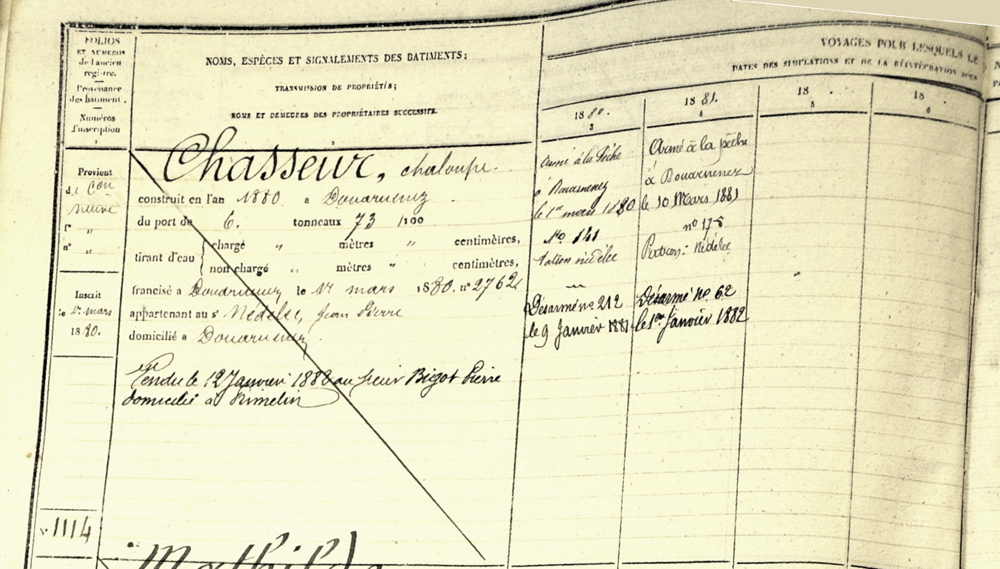 FOLIOS
ET NUMÉROS
de l'ancien
registre.
Provenance
des bâtiment.
Numéros
d'inscription
1
NOMS, ESPÈCES ET SIGNALEMENTS DES BATIMENTS;
TRANSMISSION DE PROPRIÉTÉS;
NOMS ET DEMEURES DES PROPRIÉTAIRES SUCCESSIFS.
VOYAGES POUR LESQUELS LE
DATES DES SIMULATIONS ET DE LA RÉINTÉGRATION
1880.
3
1881.
4
18 .
5
18 .
6
Provient
de Con
neuve
f° "
n° "
Inscrit
le 1er mars
1880.
N° 1114
Chasseur, chaloupe.
construit en l'an 1880 à Douarnenez
du port de 6. tonneaux 73 /100
tirant d'eau { chargé " mètres " centimètres,
non chargé " mètres " centimètres,
francisé à Douarnenez le 1er mars 1880. n° 2762
appartenant au sr Nédélec, Jean Pierre
domicilié à Douarnenez
Vendu le 12 Janvier 1882 au sieur Bigot Pierre
domicilié à
Armé à la Pêche
à Douarnenez
le 1er mars 1880
N° 141
Patron nédélec
Désarmé n° 212
le 9 Janvier 1881
Armé à la pêche
à Douarnenez
le 10 Mars 1881
n° 175
Patron: Nédélec
Désarmé n° 62
le 1er Janvier 1882
Mathilde